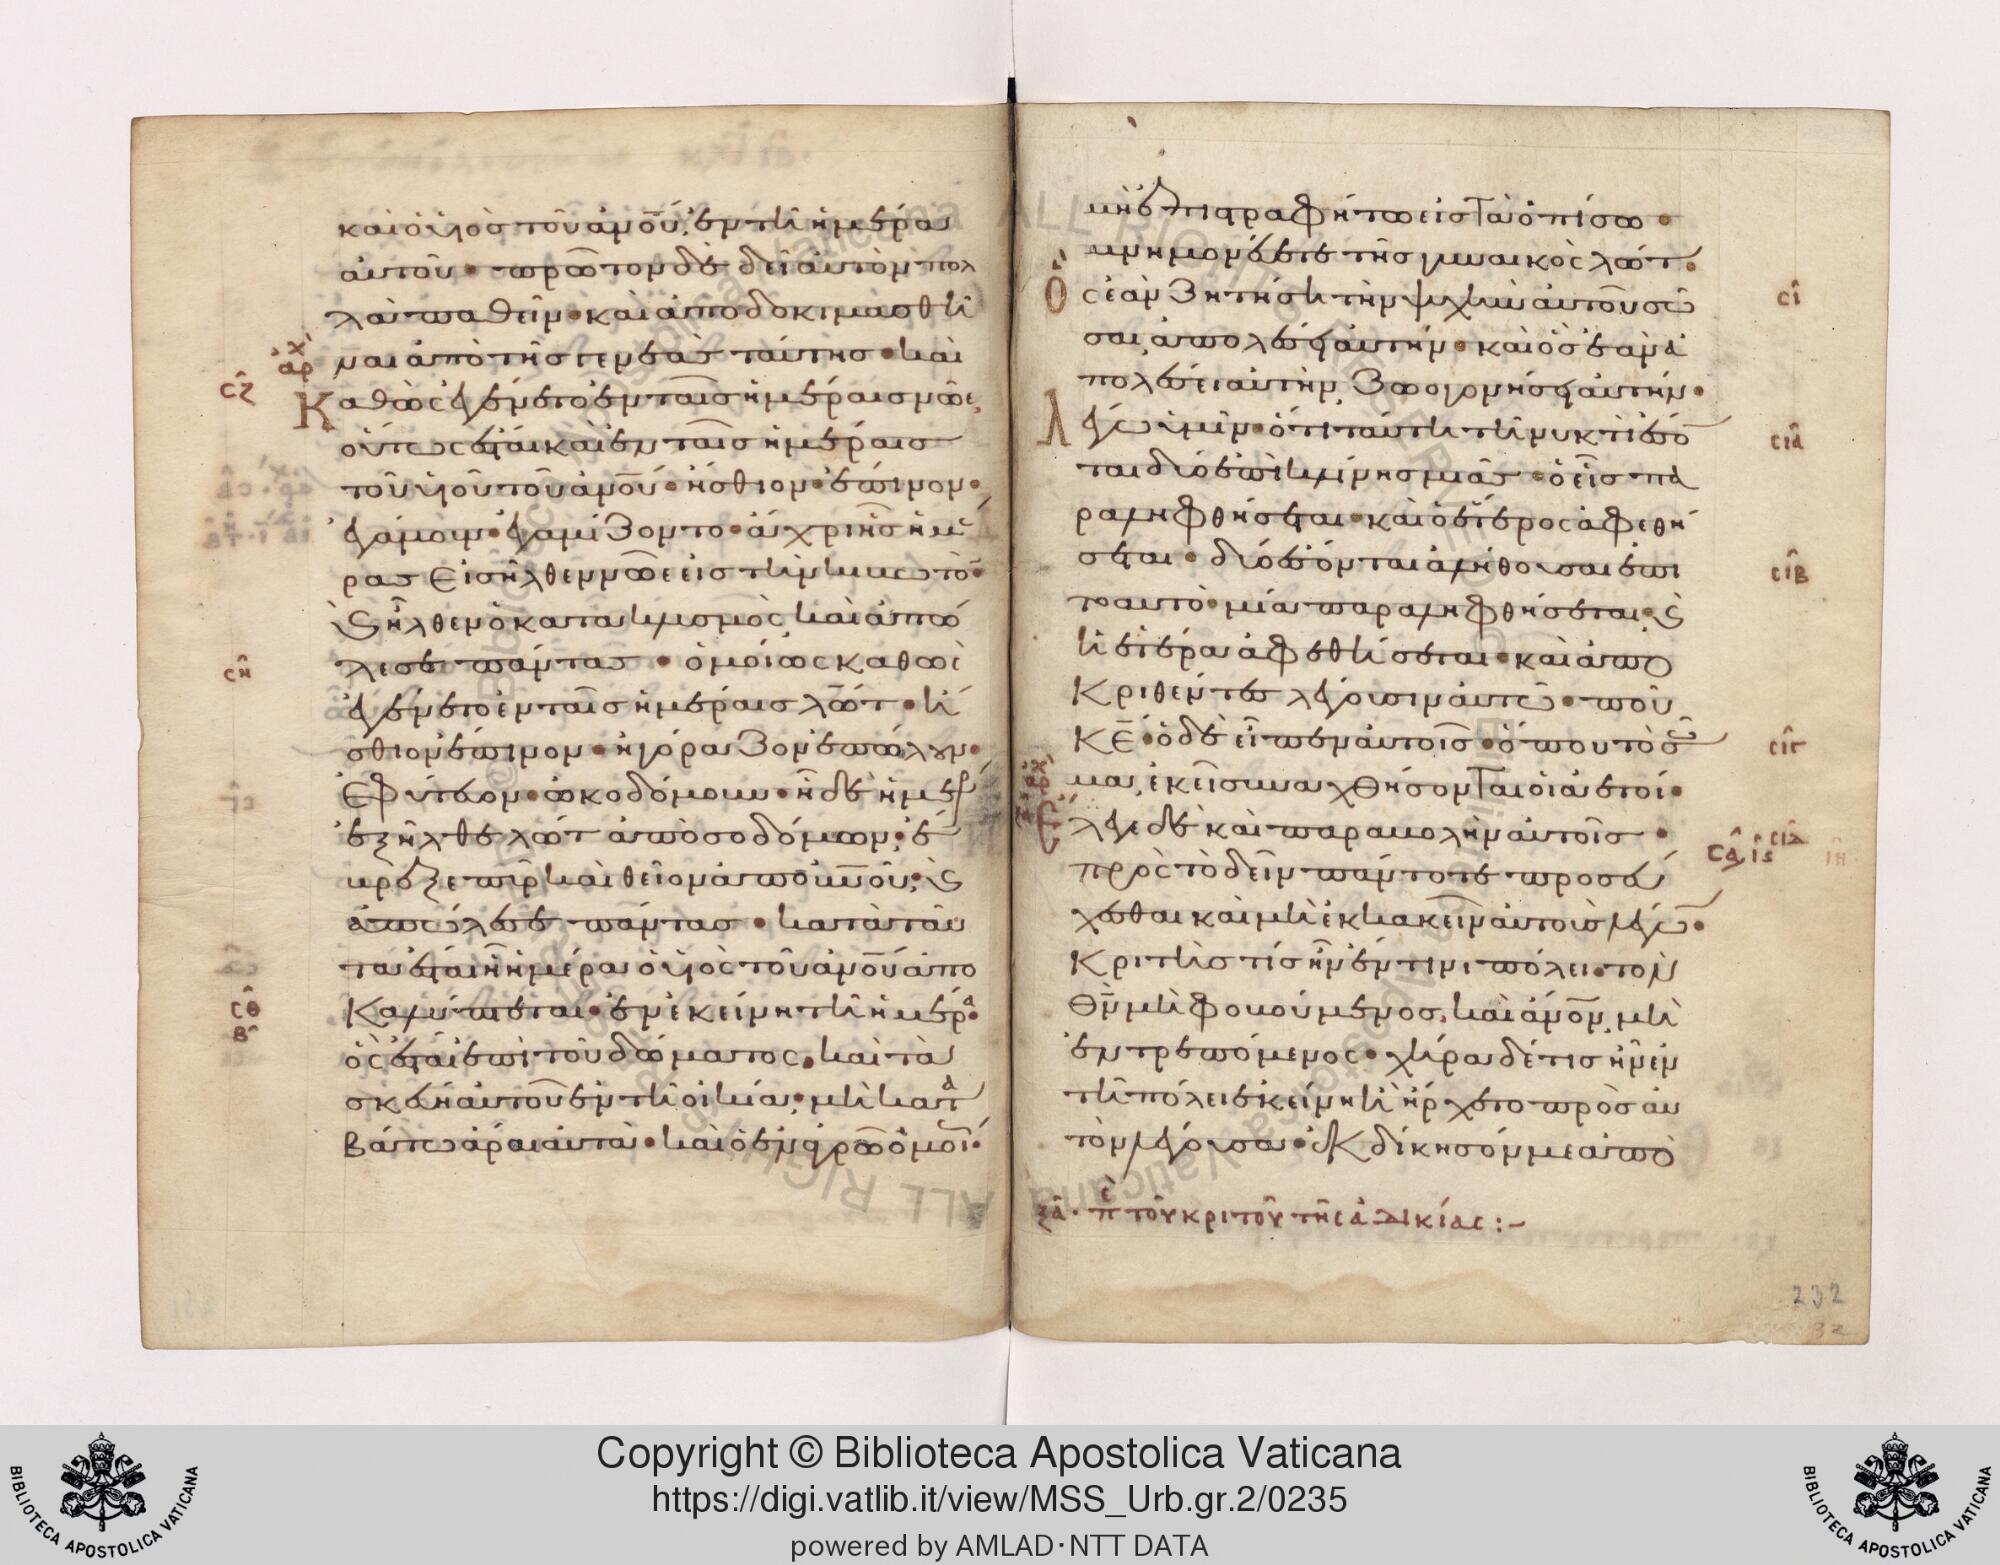 και ὁ υἱὸς τοῦ ἀν̅ου̅, ἐν τῆ ἡμέρα
αὐτοῦ · πρῶτον δὲ δεῖ αὐτὸν πολ
λὰ παθεῖν · καὶ ἀποδοκιμασθῆ
ναι ἀπὸ τῆς γενεᾶς ταύτης · καὶ
ἀρχ
σζ
Καθὼς ἐγένετο ἐν ταῖς ἡμέραις νῶε,
οὕτως ἔσται καὶ ἐν ταῖς ἡμέραις
τοῦ υἱοῦ τοῦ ἀν̅ου̅ · ἤσθιον · ἔπινον ·
ἐγάμουν · ἐγαμίζοντο · ἄχρι ἧς ἡμέ
ρας εἰσῆλθεν νῶε εἰς τὴν κιβωτὸ ·
Ϛ ἦλθεν ὁ κατακλυσμὸς, καὶ ἀπώ
λεσε πάντας · ὁμοίως καθὼς
ση
ἐγένετο ἐν ταῖς ἡμέραις λώτ · ἤ
σθιον ἔπινον · ἠγόραζον ἐπώλουν ·
ἐφύτευον · ὠκοδόμουν · ἧ δὲ ἡμέρα
ἐξῆλθε λὼτ ἀπὸ σοδόμων, ἔ
βρεξε πῦρ καὶ θεῖον ἀπ' οὐν̅οῦ, Ϛ
ἀπώλεσε πάντας · κατὰ ταῦ
τα ἔσται ἧ ἡμέρα ὁ υἱὸς τοῦ ἀν̅ου̅ ἀπο
Καλύπτεται · ἐν ἐκείνη τῆ ἡμέρα ·
σθ
β
ὃς ἔσται ἐπὶ τοῦ δώματος, καὶ τὰ
σκεύη αὐτοῦ ἐν τῆ οἰκία, μὴ κατα
βάτω ἆραι αὐτὰ · καὶ ὁ ἐν ἀγρῶ ὁμοί ·
μὴ ἐπιστραφήτω εἰς τὰ ὀπίσω ·
μνημονεύετε τῆς γυναικὸς λώτ ·
Ὃς ἐὰν ζητήση τὴν ψυχὴν αὐτοῦ σῶ
σι
σαι, ἀπολέσει αὐτήν · καὶ ὃς ἐὰν ἀ
πολέσει αὐτὴν, ζωογονήσει αὐτήν ·
Λέγω ὑμῖν · ὅτι ταύτη τῆ νυκτὶ ἔσο
σια
ται δύο ἐπὶ κλίνης μιᾶς · ὁ εἷς πα
ραληφθήσεται · καὶ ὁ ἕτερος ἀφεθή
σεται · δύο ἔσονται ἀλήθουσαι ἐπι
σιβ
τοαυτὸ · μία παραληφθήσεται, Ϛ
ἡ ἑτέρα ἀφεθήσεται · καὶ ἀπο
Κριθέντες λέγουσιν αὐτῶ · ποῦ
Κ̅Ε̅ · ὁ δὲ εἶπεν αὐτοῖς · ὅπου τὸ σῶ
σιγ
μα, ἐκεῖ συναχθήσονται οἱ ἀετοί ·
ἀρχ
Ἔλεγε δὲ καὶ παραβολὴν αὐτοῖς ·
σιδ
πρὸς τὸ δεῖν πάντοτε προσεύ
χεσθαι καὶ μὴ ἐκκακεῖν αὐτοὺς λέγω̅ ·
Κριτής τίς ἦν ἔν τινι πόλει · τὸν
Θν̅ μὴ φοβούμενος, καὶ ἄνο̅ν, μὴ
ἐντρεπόμενος · χήρα δέ τις ἦν ἐν
τῆ πόλει ἐκείνη ἣ ἤρχετο πρὸς αὐ
τὸν λέγουσα · ἐκδίκησόν με ἀπὸ
ξα · πε τοῦ κριτοῦ τῆς ἀδικίας :~
232
32
Copyright © Biblioteca Apostolica Vaticana
https://digi.vatlib.it/view/MSS_Urb.gr.2/0235
powered by AMLAD·NTT DATA
BIBLIOTECA APOSTOLICA VATICANA
BIBLIOTECA APOSTOLICA VATICANA